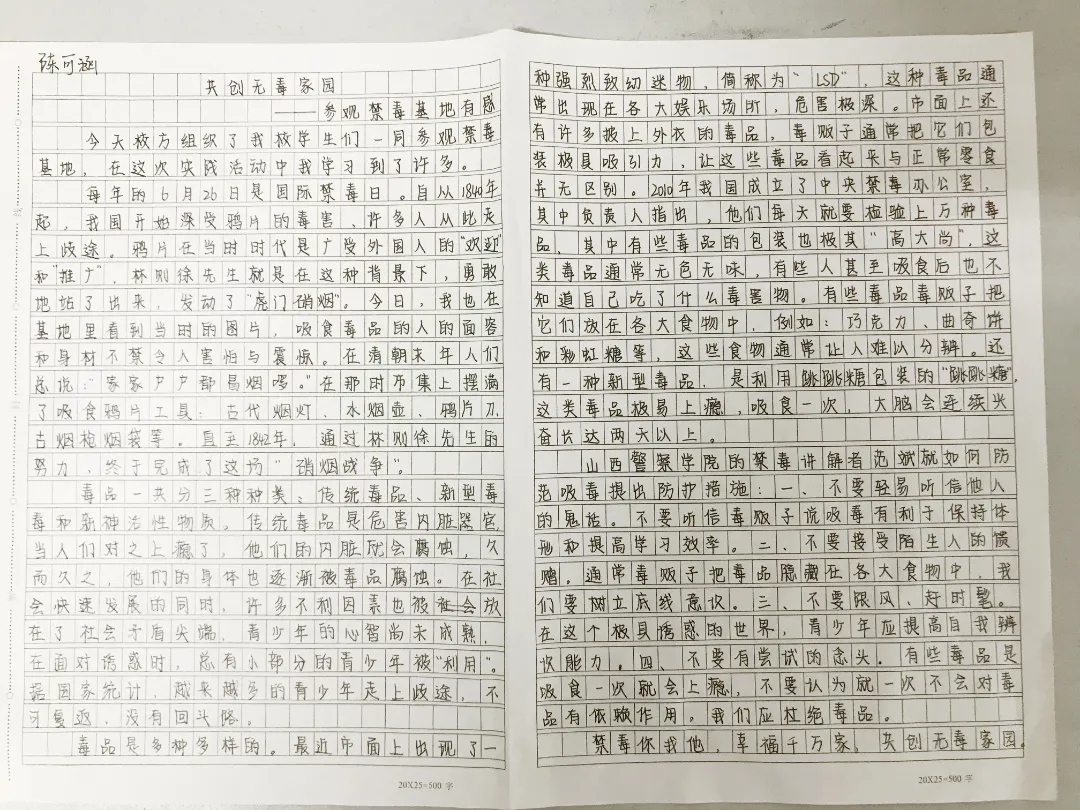 陈可涵
共创无毒家园
——参观禁毒基地有感
今天校方组织了我校学生们一同参观禁毒
基地，在这次实践活动中我学习到了许多。
每年的6月26日是国际禁毒日。自从1840年
起，我国开始深受鸦片的毒害、许多人从此走
上歧途。鸦片在当时时代是广受外国人的“欢迎”
和“推广”，林则徐先生就是在这种背景下，勇敢
地站了出来，发动了“虎门硝烟”。今日，我也在
基地里看到当时的图片，吸食毒品的人的面容
和身材不禁令人害怕与震惊。在清朝末年人们
总说：“家家户户都易烟啰。”在那时市集上摆满
了吸食鸦片工具：古代烟灯、水烟壶、鸦片刀、
古烟枪烟袋等。直至1842年，通过林则徐先生的
努力，终于完成了这场“硝烟战争”。
毒品一共分三种种类、传统毒品、新型毒
毒和新神活性物质。传统毒品是危害内脏器官
当人们对之上瘾了，他们的内脏就会腐蚀，久
而久之，他们的身体也逐渐被毒品腐蚀。在社
会快速发展的同时，许多不利因素也被社会放
在了社会矛盾尖端，青少年的心智尚未成熟，
在面对诱惑时，总有小部分的青少年被“利用”。
据国家统计，越来越多的青少年走上歧途，不
可复返，没有回头路。
毒品是多种多样的。最近市面上出现了一
种强烈致幻迷物，简称为“LSD”，这种毒品通
常出现在各大娱乐场所，危害极深。市面上还
有许多披上外衣的毒品，毒贩子通常把它们包
装极具吸引力，让这些毒品看起来与正常零食
并无区别。2010年我国成立了中央禁毒办公室，
其中负责人指出，他们每天就要检验上万种毒
品、其中有些毒品的包装也极其“高大尚”，这
类毒品通常无色无味，有些人甚至吸食后也不
知道自己吃了什么毒害物。有些毒品毒贩子把
它们放在各大食物中，例如：巧克力、曲奇饼
和彩虹糖等，这些食物通常让人难以分辨。还
有一种新型毒品、是利用跳跳糖包装的“跳跳糖”，
这类毒品极易上瘾，吸食一次，大脑会连续兴
奋长达两天以上。
山西警察学院的禁毒讲解者范斌就如何防
范吸毒提出防护措施：一、不要轻易听信他人
的鬼话。不要听信毒贩子说吸毒有利于保持体
形和提高学习效率。二、不要接受陌生人的馈
赠。通常毒贩子把毒品隐藏在各大食物中，我
们要树立底线意识。三、不要跟风、好时髦。
在这个极具诱惑的世界，青少年应提高自我辨
识能力。四、不要有尝试的念头。有些毒品是
吸食一次就会上瘾，不要认为就一次不会对毒
品有依赖作用。我们应杜绝毒品。
禁毒你我他，幸福千万家、共创无毒家园。
20X25=500 字
20X25=500 字